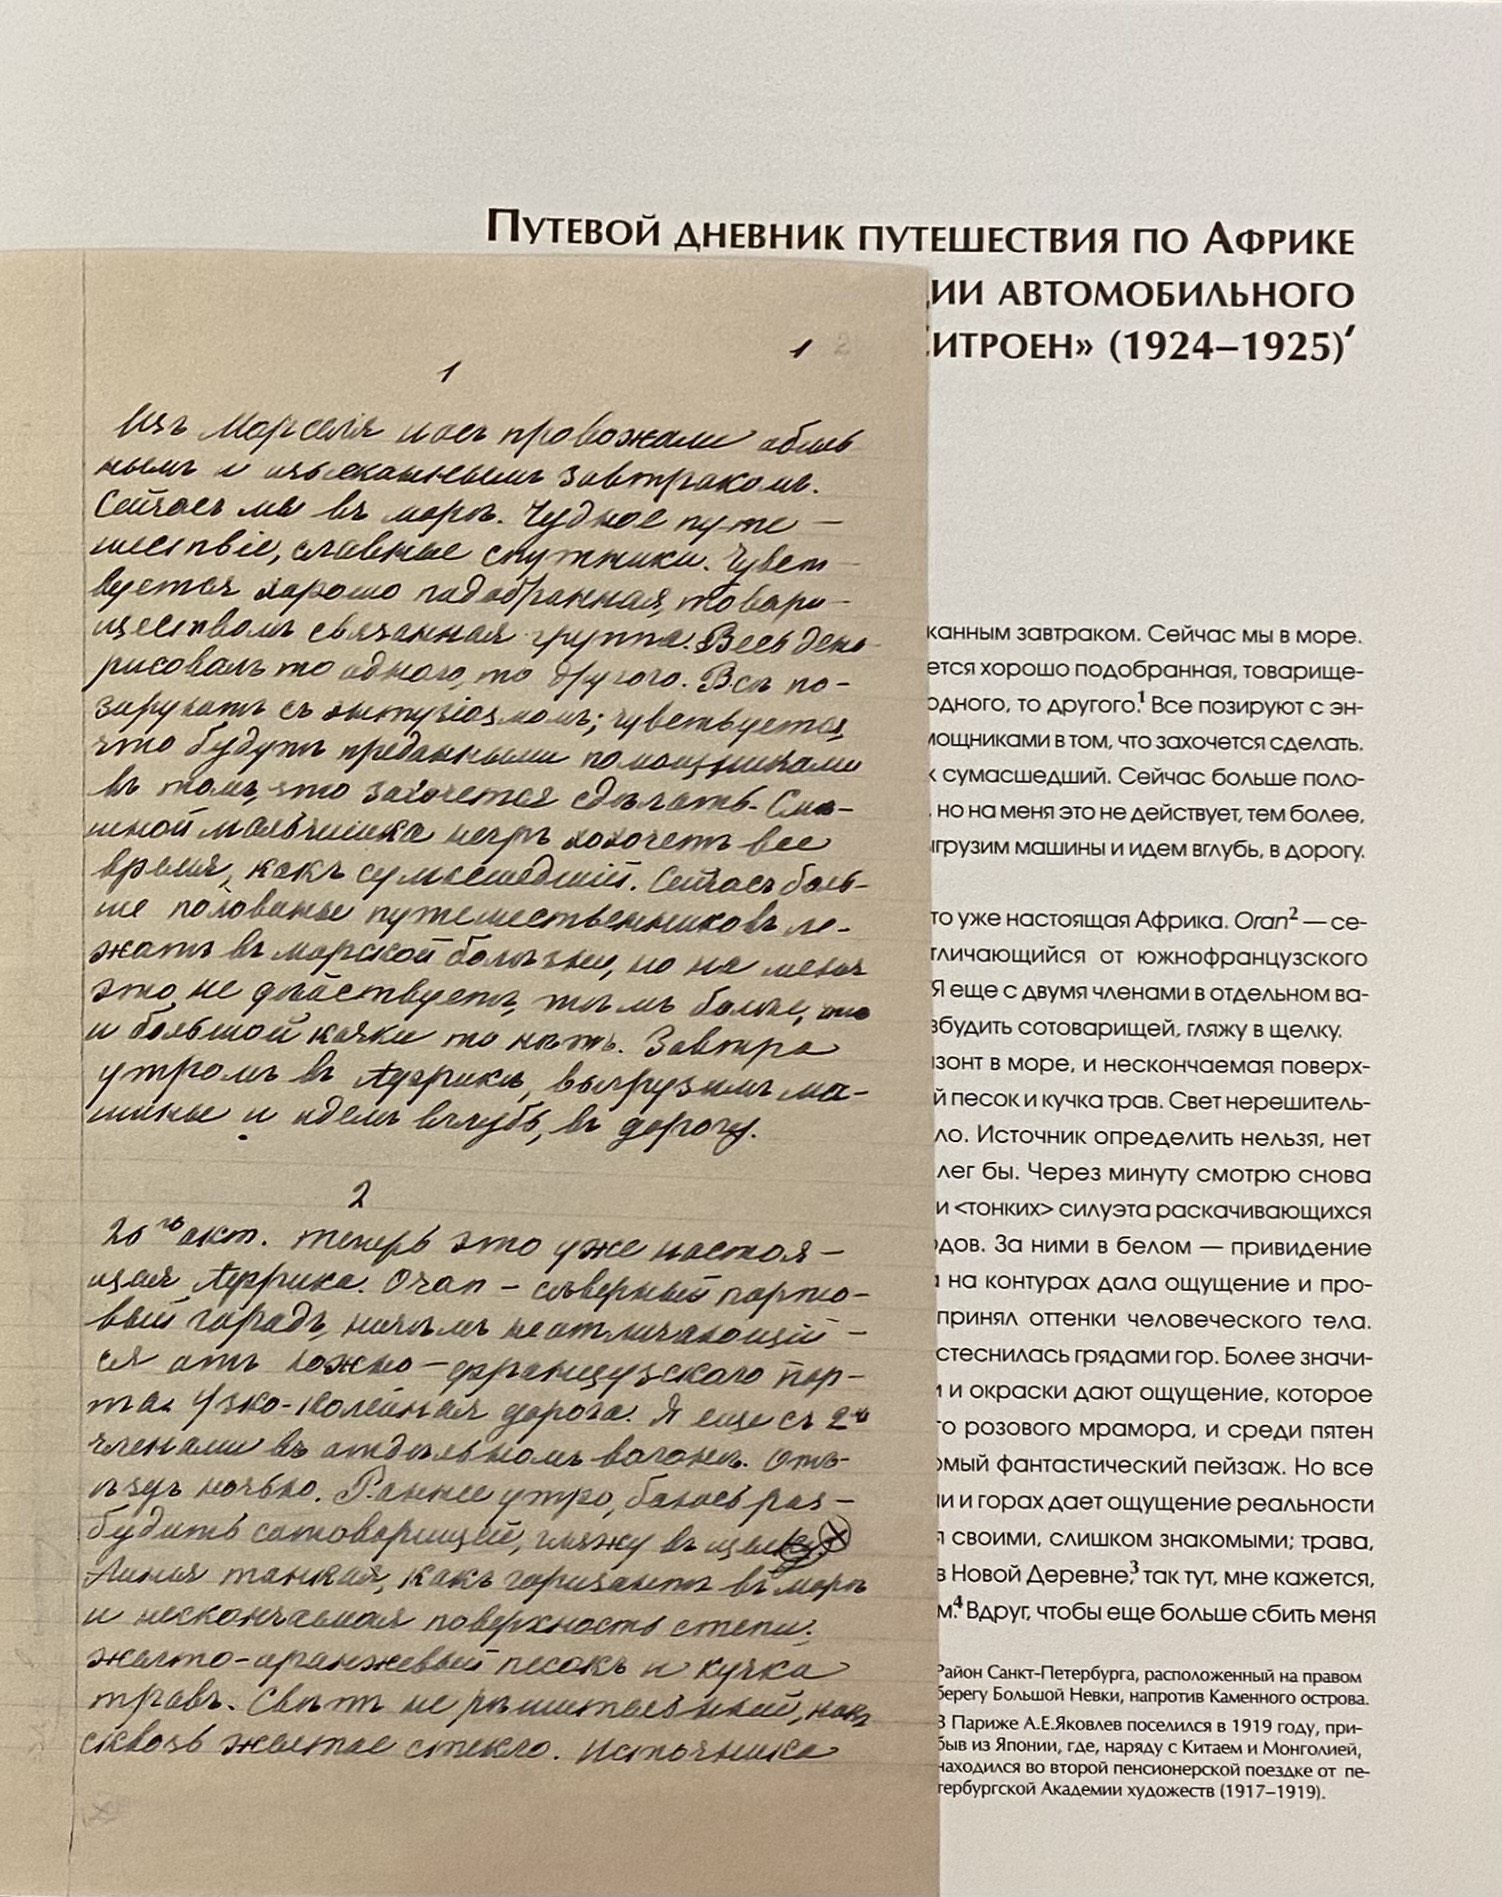 Путевой дневник путешествия по Африке
ии автомобильного
итроен» (1924–1925)
1
1
Изъ Марселя насъ провожали обиль
нымъ и изысканнымъ завтракомъ.
Сейчасъ мы въ морѣ. Чудное путе—
шествіе, славные спутники. Чувст—
вуется хорошо подобранная, товари—
ществомъ связанная группа. Весь день
рисовалъ то одного, то другого. Всѣ по-
зируютъ съ энтузіазмомъ; чувствуется,
что будутъ преданными помощниками
въ томъ, что захочется сдѣлать. Смѣ-
шной мальчишка негръ хохочетъ все
время, какъ сумасшедшій. Сейчасъ боль-
ше половины путешественниковъ ле-
жатъ въ морской болѣзни, но на меня
это не дѣйствуетъ, тѣмъ болѣе, что
и большой качки то нѣтъ. Завтра
утромъ въ Африкѣ, выгрузимъ ма-
шины и идемъ вглубь, въ дорогу.
2
окт. Теперь это уже настоя—
щая Африка. Oran — сѣверный порто-
вый городъ, ничѣмъ неотличающій—
ся отъ южно—французскаго пор—
та. Узко-колейная дорога. Я еще съ 2мя
членами въ отдѣльномъ вагонѣ. Отъ-
ѣздъ ночью. Раннее утро, боюсь раз—
будить сотоварищей, гляжу въ щелку.
Линія тонкая, какъ горизонтъ въ морѣ
и нескончаемая поверхность степи;
желто-оранжевый песокъ и кучка
травъ. Свѣтъ нерѣшительный, какъ
сквозь желтое стекло. Источника
канным завтраком. Сейчас мы в море.
ется хорошо подобранная, товарище-
одного, то другого.1 Все позируют с эн-
мощниками в том, что захочется сделать.
к сумасшедший. Сейчас больше поло-
, но на меня это не действует, тем более,
ыгрузим машины и идем вглубь, в дорогу.
то уже настоящая Африка. Oran2 — се-
тличающийся от южнофранцузского
Я еще с двумя членами в отдельном ва-
збудить сотоварищей, гляжу в щелку.
изонт в море, и нескончаемая поверх-
й песок и кучка трав. Свет нерешитель-
ло. Источник определить нельзя, нет
лег бы. Через минуту смотрю снова
и <тонких> силуэта раскачивающихся
дов. За ними в белом — привидение
а на контурах дала ощущение и про-
принял оттенки человеческого тела.
стеснилась грядами гор. Более значи-
и и окраски дают ощущение, которое
го розового мрамора, и среди пятен
омый фантастический пейзаж. Но все
и и горах дает ощущение реальности
я своими, слишком знакомыми; трава,
в Новой Деревне,3 так тут, мне кажется,
м.4 Вдруг, чтобы еще больше сбить меня
Район Санкт-Петербурга, расположенный на правом
берегу Большой Невки, напротив Каменного острова.
В Париже А.Е.Яковлев поселился в 1919 году, при-
быв из Японии, где, наряду с Китаем и Монголией,
находился во второй пенсионерской поездке от пе-
тербургской Академии художеств (1917–1919).